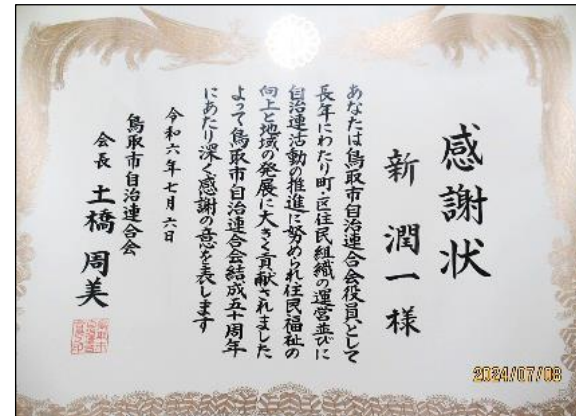 感謝状
新 潤一 様
あなたは鳥取市自治連合会役員として
長年にわたり町・区住民組織の運営並びに
自治連活動の推進に努められ住民福祉の
向上と地域の発展に大きく貢献されました
よって鳥取市自治連合会結成五十周年
にあたり深く感謝の意を表します
令和六年七月六日
鳥取市自治連合会
会長 土橋 周美
2024/07/08